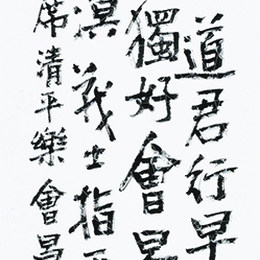 道君行早
獨好會昌
溟戰士指
席清平樂會昌